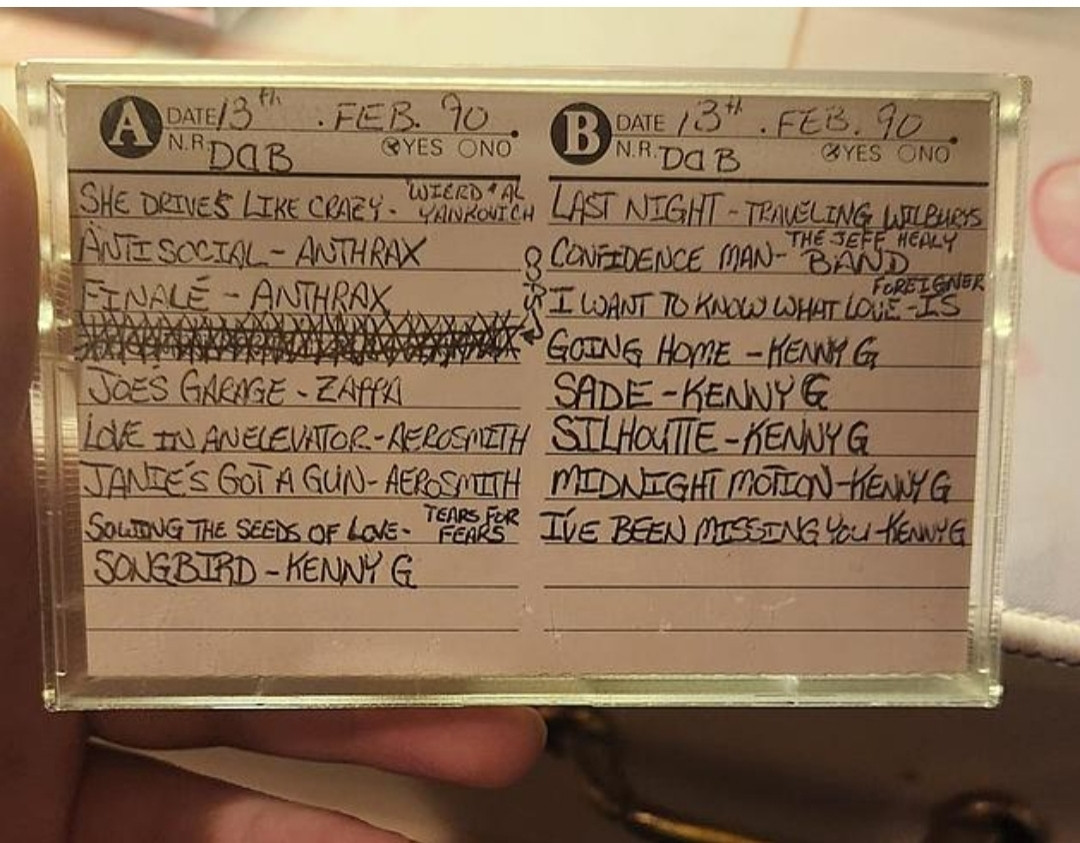 A DATE 13th . FEB. 90 .
N.R. DAB ⊗YES ○NO
SHE DRIVES LIKE CRAZY - "WIERD" AL YANKOVICH
ANTISOCIAL - ANTHRAX
FINALÉ - ANTHRAX
JOE'S GARAGE - ZAPPA
LOVE IN AN ELEVATOR - AEROSMITH
JANIE'S GOT A GUN - AEROSMITH
SOWING THE SEEDS OF LOVE - TEARS FOR FEARS
SONGBIRD - KENNY G
B DATE 13th . FEB. 90 .
N.R. DAB ⊗YES ○NO
LAST NIGHT - TRAVELING WILBURYS
CONFIDENCE MAN - THE JEFF HEALY BAND
I WANT TO KNOW WHAT LOVE - IS FOREIGNER
GOING HOME - KENNY G
SADE - KENNY G
SILHOUTTE - KENNY G
MIDNIGHT MOTION - KENNY G
I'VE BEEN MISSING YOU - KENNY G